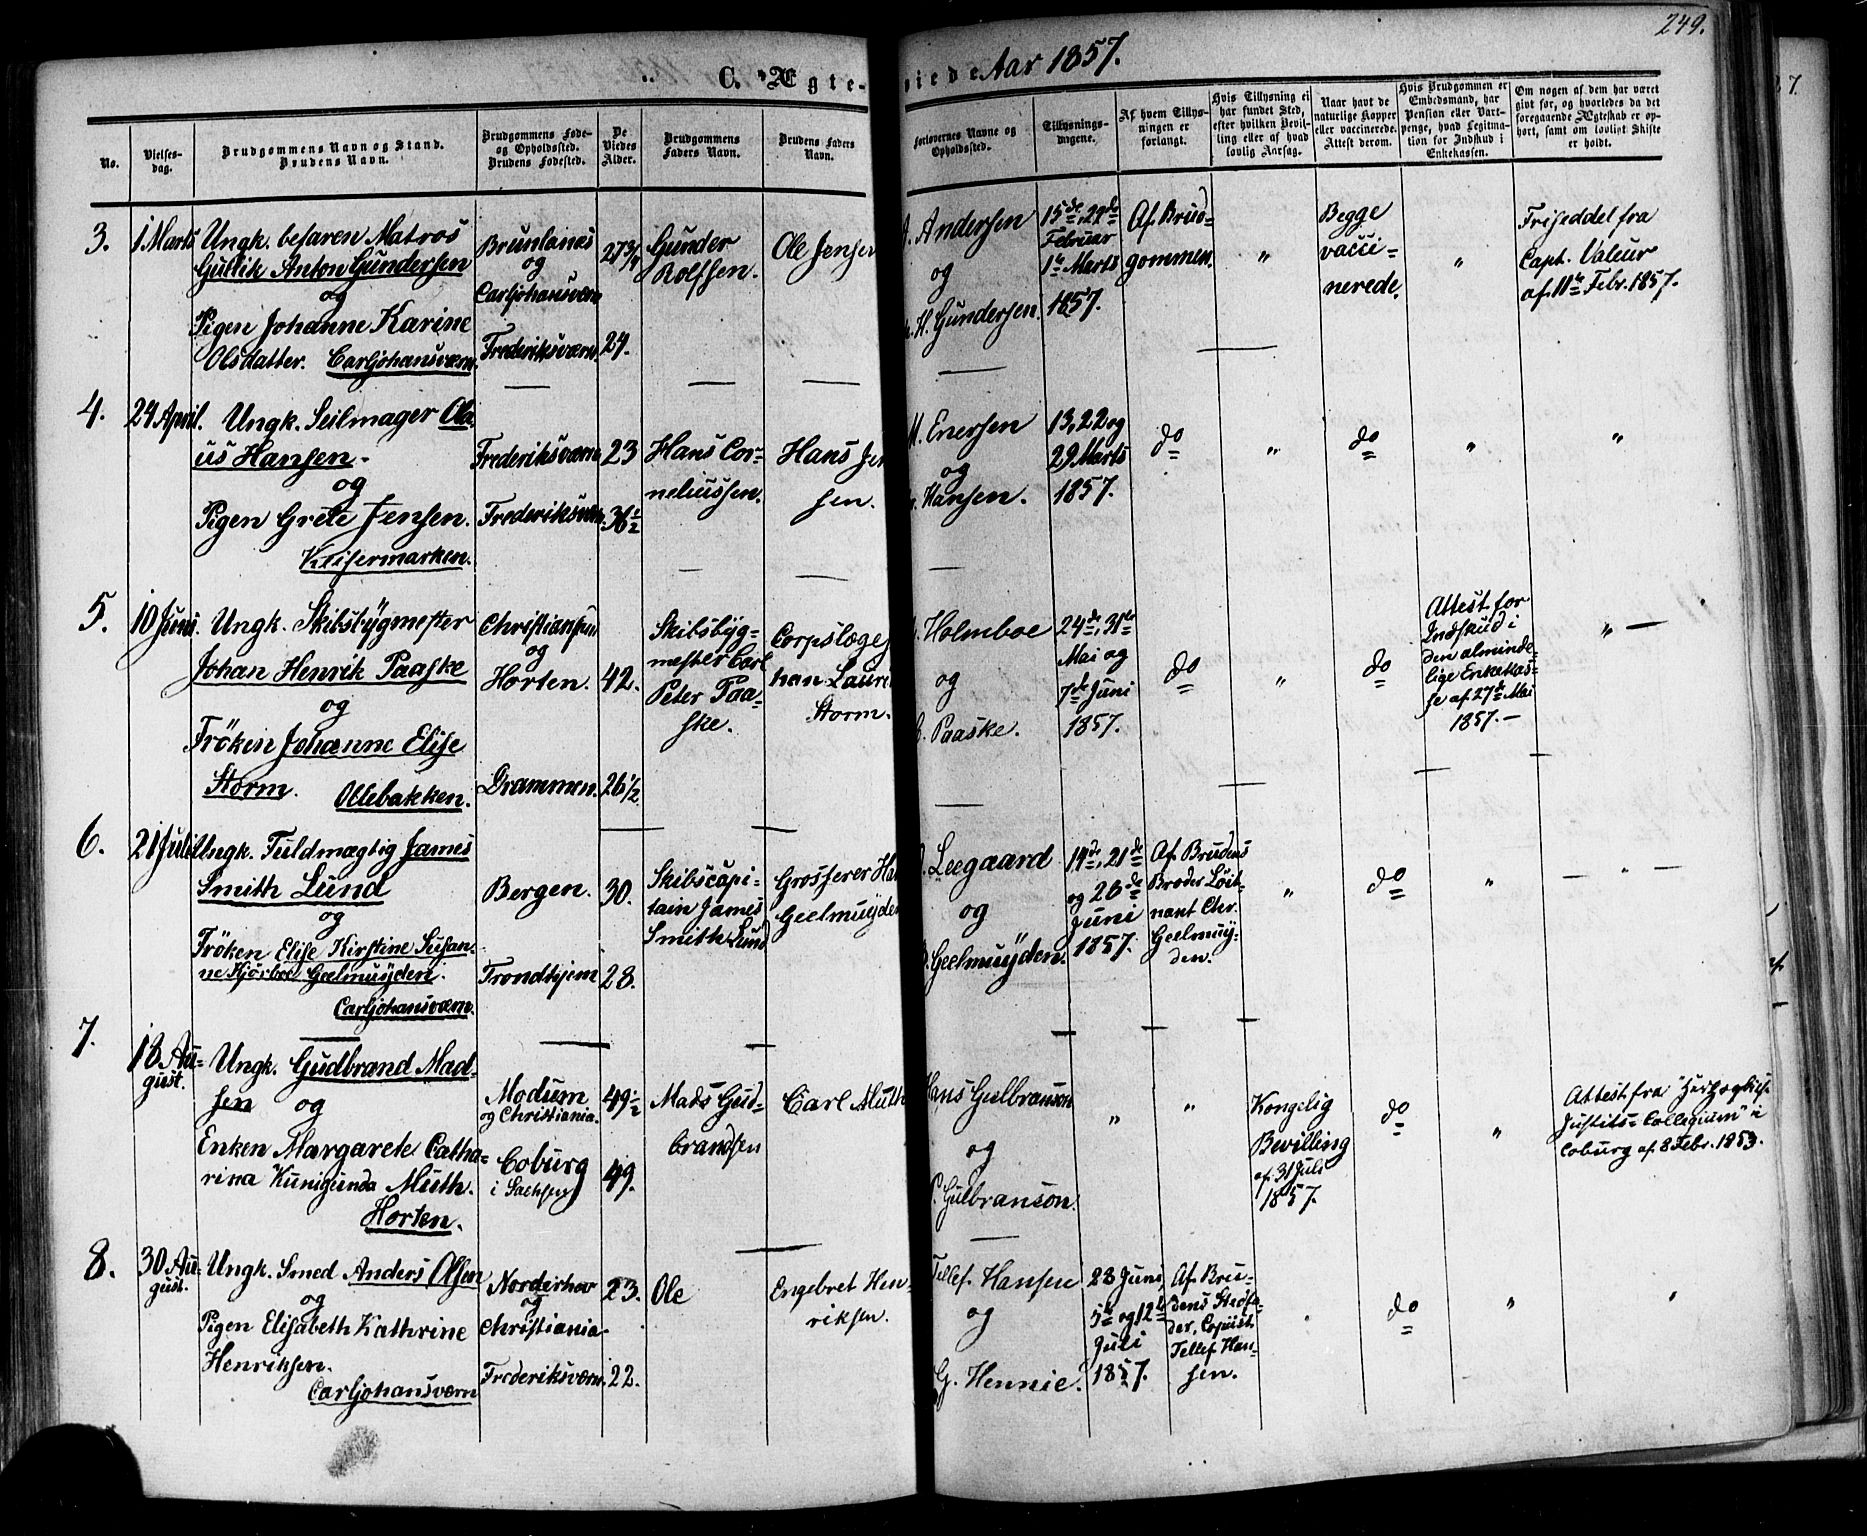 249.
C. Ægte-viede Aar 1857.
No.
Vielses-
dag.
Brudgommens Navn og Stand.
Brudens Navn.
Brudgommens Føde-
og Opholdssted.
Brudens Fødested.
De
Viedes
Alder.
Brudgommens
Faders Navn.
Brudens Faders
Navn.
Forlovernes Navne og
Opholdssted.
Tillysnings-
dagene.
Af hvem Tillys-
ningen er
forlangt.
Hvis Tillysning ei
har fundet Sted,
efter hvilken Bevil-
ling eller af hvad
lovlig Aarsag.
Naar havt de
naturlige Kopper
eller vaccinerede.
Attest derom.
Hvis Brudgommen er
Embedsmand, har
Pension eller Vart-
penge, hvad Legitima-
tion for Indskud i
Enkekassen.
Om nogen af dem har været
givt før, og hvorledes da det
foregaaende Ægteskab er op-
hørt, samt om lovligt Skifte
er holdt.
3.
1 Marts
Ungk. befaren Matros
Gullik Anton Gundersen
og
Pigen Johanne Karine
Olsdatter. Carljohansværn.
Brunlanes
og
Carljohansværn
Frederiksværn.
27 3/4
24.
Gunder
Rolfsen.
Ole Jensen
A. Andersen
og
H. Gundersen.
15de, 22de
Februar
1te Marts
1857.
Af Brud-
gommen.
"
Begge
vacci-
nerede.
"
Friseddel fra
Capt. Valeur
af 11te Febr. 1857.
4.
24 April.
Ungk. Seilmager Ola-
us Hansen.
og
Pigen Grete Jensen.
Keisermarken.
Frederiksværn
Frederiksværn.
23
36 1/2
Hans Cor-
neliussen.
Hans Jen
sen.
M. Enersen
og
Hansen.
13, 22 og
29 Marts
1857.
do
"
do
"
"
5.
10 Juni.
Ungk. Skibsbygmester
Johan Henrik Paaske
og
Frøken Johanne Elise
Storm. Ollebakken.
Christianssund
og
Horten.
Drammen.
42.
26 1/2
Skibsbyg-
mester Carl
Peter Paa-
ske.
Corpslæge
han Lauri
Storm.
Holmboe
og
Paaske.
24de, 31te
Mai og
7de Juni
1857.
do
"
do
Attest for
Indskud i
den alminde-
lige Enkekas-
se af 27de Mai
1857.
"
6.
21 Juli
Ungk. Fuldmægtig James
Smith Lund
og
Frøken Elise Kirstine Susan-
ne Kjørboe Geelmuyden.
Carljohansværn.
Bergen.
Trondhjem
30.
28.
Skibscapi-
tain James
Smith Lund
Grosserer Ha
Geelmuyden
Leegaard
og
Geelmuyden.
14de, 21de
og 28de
Juni
1857.
Af Brudens
Broder Løit-
nant Chr.
Geelmuy-
den.
"
do
"
"
7.
18 Au-
gust.
Ungk. Gudbrand Mad-
sen og
Enken Margarete Catha-
rina Kunigunda Muth.
Horten.
Modum
og Christiania.
Coburg
i Sachsen
49 1/2
49.
Mads Gud-
brandsen
Carl Muth
Hans Gulbranson
og
P. Gulbranson.
"
"
Kongelig
Bevilling
af 31 Juli
1857.
do
"
Attest fra "Herzogliche
Justits-Collegium" i
Coburg af 8 Febr. 1853.
8.
30 Au-
gust.
Ungk. Smed Anders Olsen
og
Pigen Elisabeth Kathrine
Henriksen.
Carljohansværn
Norderhov
og
Christiania.
Frederiksværn.
23.
22.
Ole
Engebret Hen-
riksen.
Tellef Hansen
og
G. Hennie.
28 Juni,
5te og 12te
Juli
1857.
Af Bru-
dens Stedfa-
der, Copiist
Tellef Han-
sen.
"
do
"
"